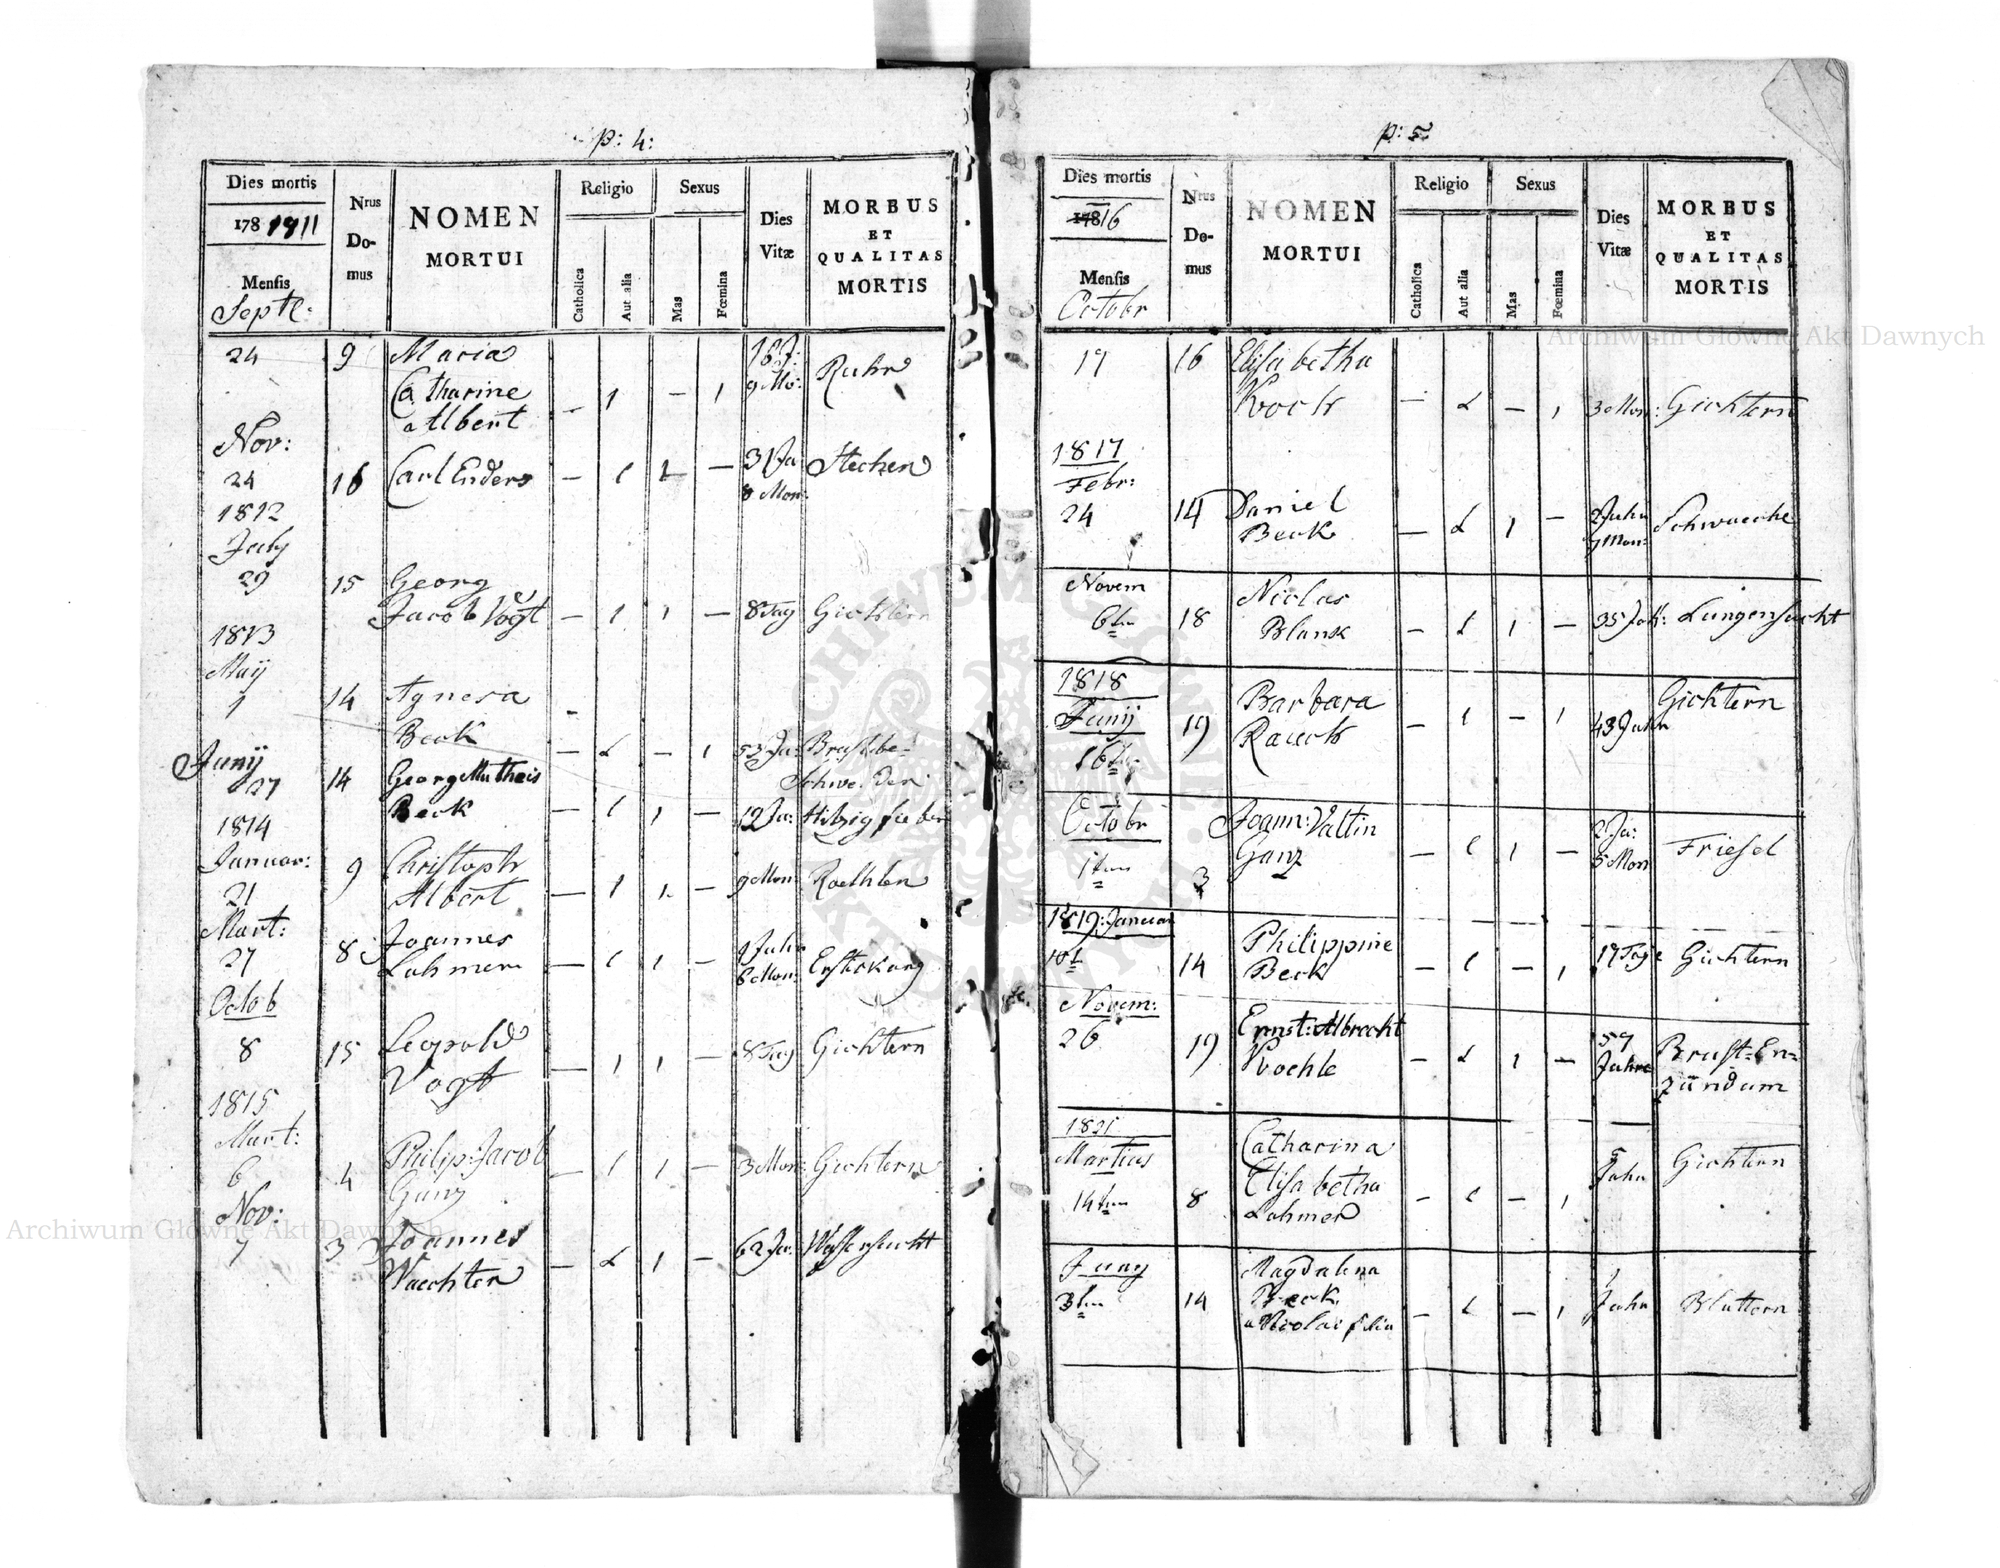 p: 4:
Dies mortis
178 1911
Mensis
Septe:
Nrus
Do-
mus
NOMEN
MORTUI
Religio
Catholica
Aut alia
Sexus
Mas
Fœmina
Dies
Vitæ
MORBUS
ET
QUALITAS
MORTIS
24 9 Maria
Catharine
Albert — 1 — 1 16 J:
9 Mo: Ruhr
Nov:
24 16 Carl Enders — 1 1 — 31 Ja:
8 Mon: Stechen
1812
July
29 15 Georg
Jacob Vogt — 1 1 — 8 Tag Gichtern
1813
Maij
1 14 Agnesa
Beck — 1 — 1 53 Ja: Brustbe-
Schwerden
Junij
27 14 Georg Matheis
Beck — 1 1 — 12 Ja: Hitzig fieber
1814
Januar:
21 9 Christoph
Albert — 1 1 — 9 Mon: Roethlen
Mart:
27 8 Joannes
Lahmer — 1 1 — 1 Jahr
6 Mon:
Octob
8 15 Leopold
Vogt — 1 1 — 8 Tag Gichtern
1815
Mart:
6 4 Philip: Jacob
Ganz — 1 1 — 3 Mon: Gichtern
Nov:
7 3 Joannes
Waechter — 1 1 — 62 Ja: Wassersucht
p: 5
Dies mortis
17816
Mensis
Octobr
Nrus
Do-
mus
NOMEN
MORTUI
Religio
Catholica
Aut alia
Sexus
Mas
Fœmina
Dies
Vitæ
MORBUS
ET
QUALITAS
MORTIS
17 16 Elisabetha
Koch — 1 — 1 3 Mon: Gichtern
1817
Febr:
24 14 Daniel
Beck — 1 1 — 2 Jahr
7 Mon: Schwaeche
Novem
6ten 18 Niclas
Blank — 1 1 — 35 Jah: Lungensucht
1818
Junij
16t 19 Barbara
Rauch — 1 — 1 43 Jahr Gichtern
Octobr
1ten 3 Joann: Valtin
Ganz — 1 1 — 2 Ja:
5 Mon Friesel
1819: Januar
10t 14 Philippine
Beck — 1 — 1 17 Tage Gichtern
Novem:
26 19 Ernst: Albrecht
Koehle — 1 1 — 59
Jahre Brust-En-
zündum
1821
Martius
14ten 8 Catharina
Elisabetha
Lahmer — 1 — 1 Jahr Gichtern
Juny
3ten 14 Magdalena
Beck
Nicolai filia — 1 — 1 1
Jahr Blattern
Archiwum Główne Akt Dawnych
Archiwum Główne Akt Dawnych
ARCHIWUM GŁÓWNE
AKT DAWNYCH